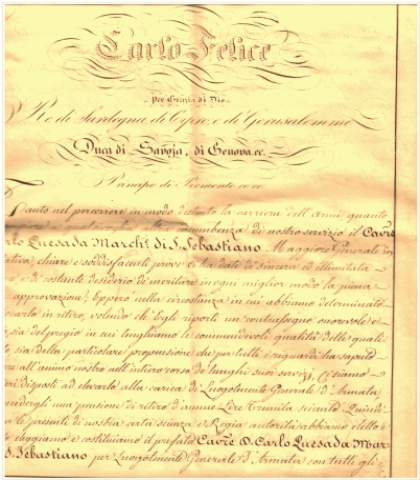 Carlo Felice
per Grazia di Dio
Re di Sardegna, di Cipro e di Gerusalemme
Duca di Savoja, di Genova ec.
Principe di Piemonte ec ec
Tanto nel percorrere in modo distinto la carriera dell'armi quanto
incumbenza di nostro servizio il Cav.re
Carlo Quesada March.e di S. Sebastiano, Maggiore Generale in
chiare e soddisfacenti prove ci ha date di sincera ed illimitata
e di costante desiderio di meritare in ogni miglior modo la piena
approvazione: Eppero nella circostanza in cui abbiamo determinato
in ritiro, volendo ch'Egli riporti un contrassegno onorevole e
sia del pregio in cui tenghiamo le commendevoli qualità delle quali
sia della particolare propensione che per tutti i riguardi ha saputo
all'animo nostro nell'intiero corso de' lunghi suoi servizi, Ci siamo
disposti ad elevarlo alla carica di Luogotenente Generale d'Armata,
una pensione di ritiro d'annue Lire Tremila seicento. Quindi
le presenti di nostra certa scienza e Regia autorità abbiamo eletto e
eleggiamo e costituiamo il prefato Cav.re D. Carlo Quesada Mar
S. Sebastiano per Luogotenente Generale d'Armata con tutti gli